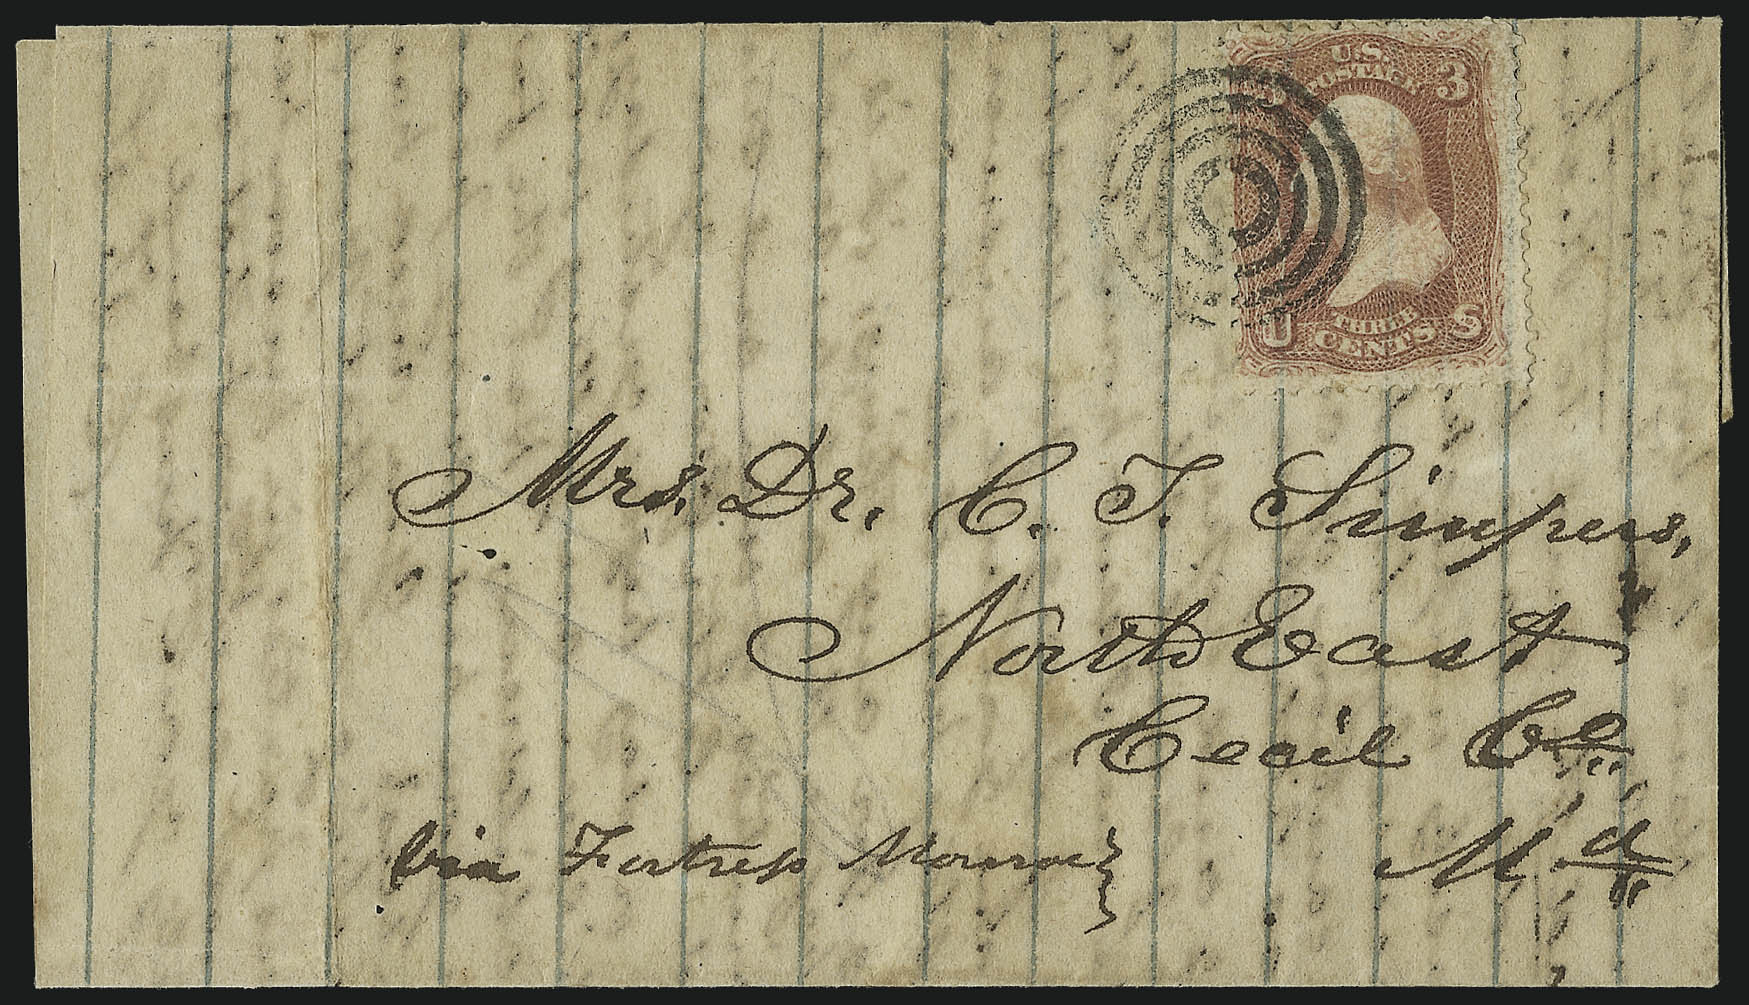 U.S.
POSTAGE
3 3
THREE
U CENTS S
Mrs. Dr. C. T. Simpers,
North East
Cecil Co.
via Fortress Monroe Md